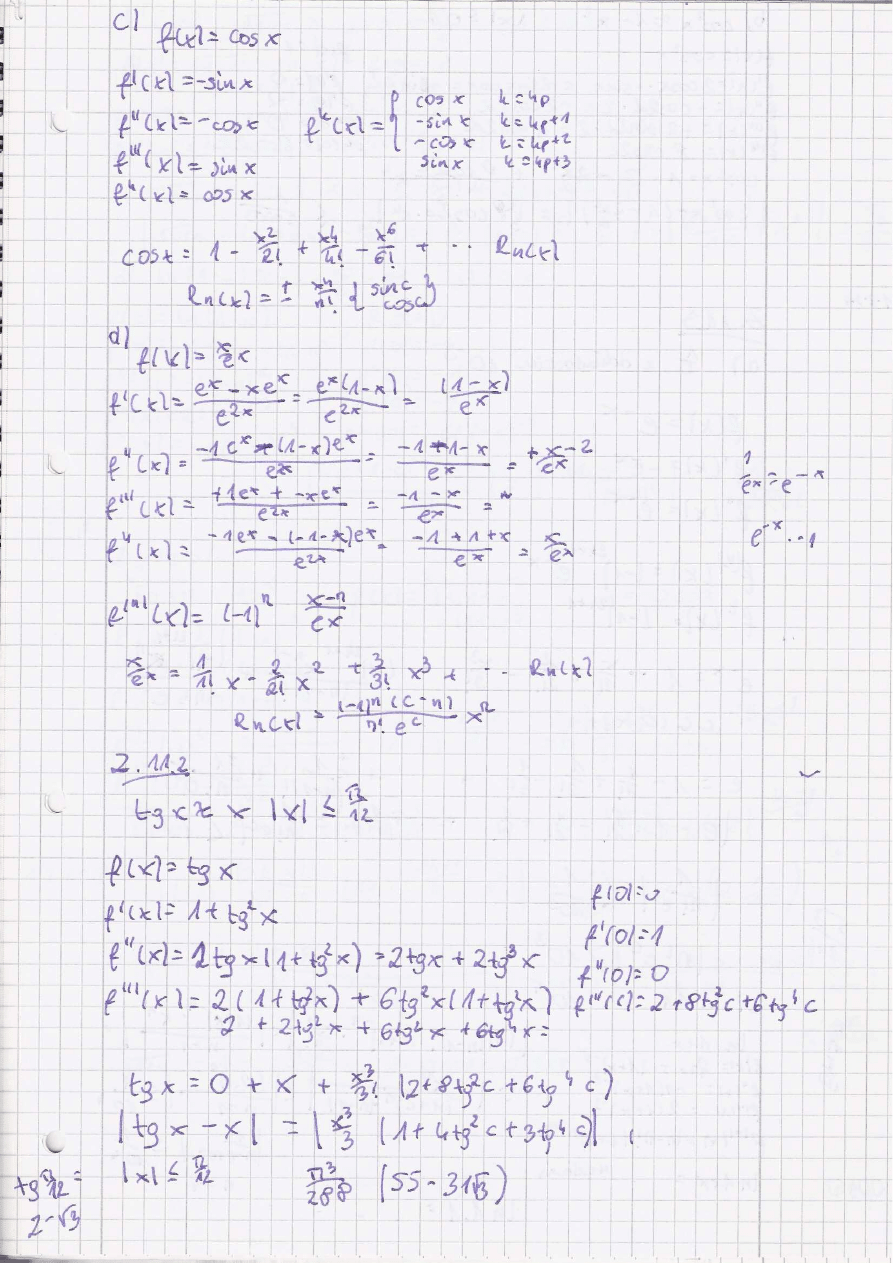 c) f(x) = cos x
f'(x) = -sin x
f''(x) = -cos x
f'''(x) = sin x
f⁴(x) = cos x
fᵏ(x) = { cos x k = 4p
-sin x k = 4p+1
-cos x k = 4p+2
sin x k = 4p+3
cos x = 1 - x²/2! + x⁴/4! - x⁶/6! + ... Rn(x)
Rn(x) = ± xⁿ/n! { sin c
cos c }
d) f(x) = x/eˣ
f'(x) = (eˣ - xeˣ)/e²ˣ = eˣ(1-x)/e²ˣ = (1-x)/eˣ
f''(x) = (-1eˣ - (1-x)eˣ)/e²ˣ = (-1 + 1 - x)/eˣ = + (x-2)/eˣ
1/eˣ = e⁻ˣ
f'''(x) = (+1eˣ + -xeˣ)/e²ˣ = (-1-x)/eˣ =
f⁴(x) = (-1eˣ - (-1-x)eˣ)/e²ˣ = (-1+1+x)/eˣ = x/eˣ
e⁻ˣ ... 1
f⁽ⁿ⁾(x) = (-1)ⁿ (x-n)/eˣ
x/eˣ = 1/1! x - 2/2! x² + 3/3! x³ + ... Rn(x)
Rn(x) = (-1)ⁿ(c-n)/(n! eᶜ) xⁿ
2.11.2
tg x ≈ x |x| ≤ π/12
f(x) = tg x
f(0) = 0
f'(x) = 1 + tg²x
f'(0) = 1
f''(x) = 2 tg x (1 + tg²x) = 2 tg x + 2 tg³x
f''(0) = 0
f'''(x) = 2(1 + tg²x) + 6 tg²x (1 + tg²x)
f'''(c) = 2 + 8 tg²c + 6 tg⁴c
2 + 2 tg²x + 6 tg²x + 6 tg⁴x =
tg x = 0 + x + x³/3! (2 + 8 tg²c + 6 tg⁴c)
|tg x - x| = |x³/3 (1 + 4 tg²c + 3 tg⁴c)|
|x| ≤ π/12 π³/288 (55 - 31√3)
tg π/12 =
2 - √3